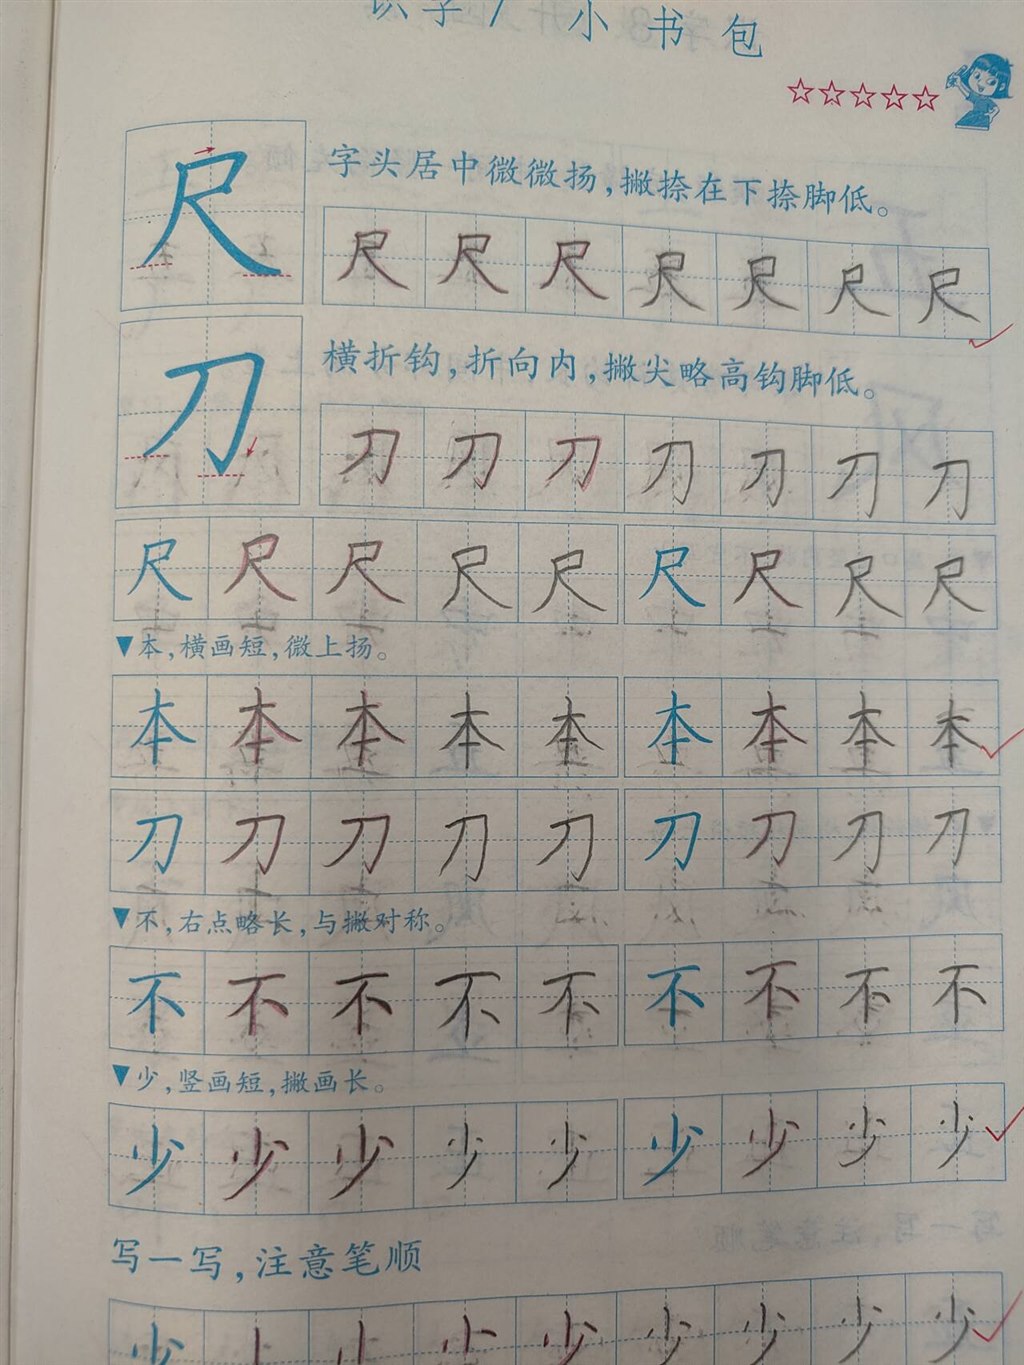 识字7 小书包
尺 字头居中微微扬,撇捺在下捺脚低。
尺 尺 尺 尺 尺 尺 尺
刀 横折钩,折向内,撇尖略高钩脚低。
刀 刀 刀 刀 刀 刀 刀
尺 尺 尺 尺 尺 尺 尺 尺 尺
▼本,横画短,微上扬。
本 本 本 本 本 本 本 本 本
刀 刀 刀 刀 刀 刀 刀 刀 刀
▼不,右点略长,与撇对称。
不 不 不 不 不 不 不 不 不
▼少,竖画短,撇画长。
少 少 少 少 少 少 少 少 少
写一写,注意笔顺
少 小 少 少 少 少 少